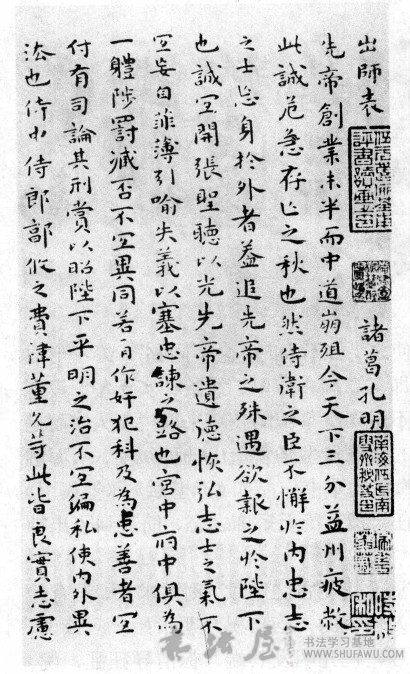 出師表 諸葛孔明
先帝創業未半而中道崩殂今天下三分益州疲敝
此誠危急存亡之秋也然侍衛之臣不懈於內忠志
之士忘身於外者蓋追先帝之殊遇欲報之於陛下
也誠宜開張聖聽以光先帝遺德恢弘志士之氣不
宜妄自菲薄引喻失義以塞忠諫之路也宮中府中俱為
一體陟罰臧否不宜異同若有作奸犯科及為忠善者宜
付有司論其刑賞以昭陛下平明之治不宜偏私使內外異
法也侍中侍郎郭攸之費禕董允等此皆良實志慮
書法屋
书法学习基地
WWW.SHUFAWU.COM